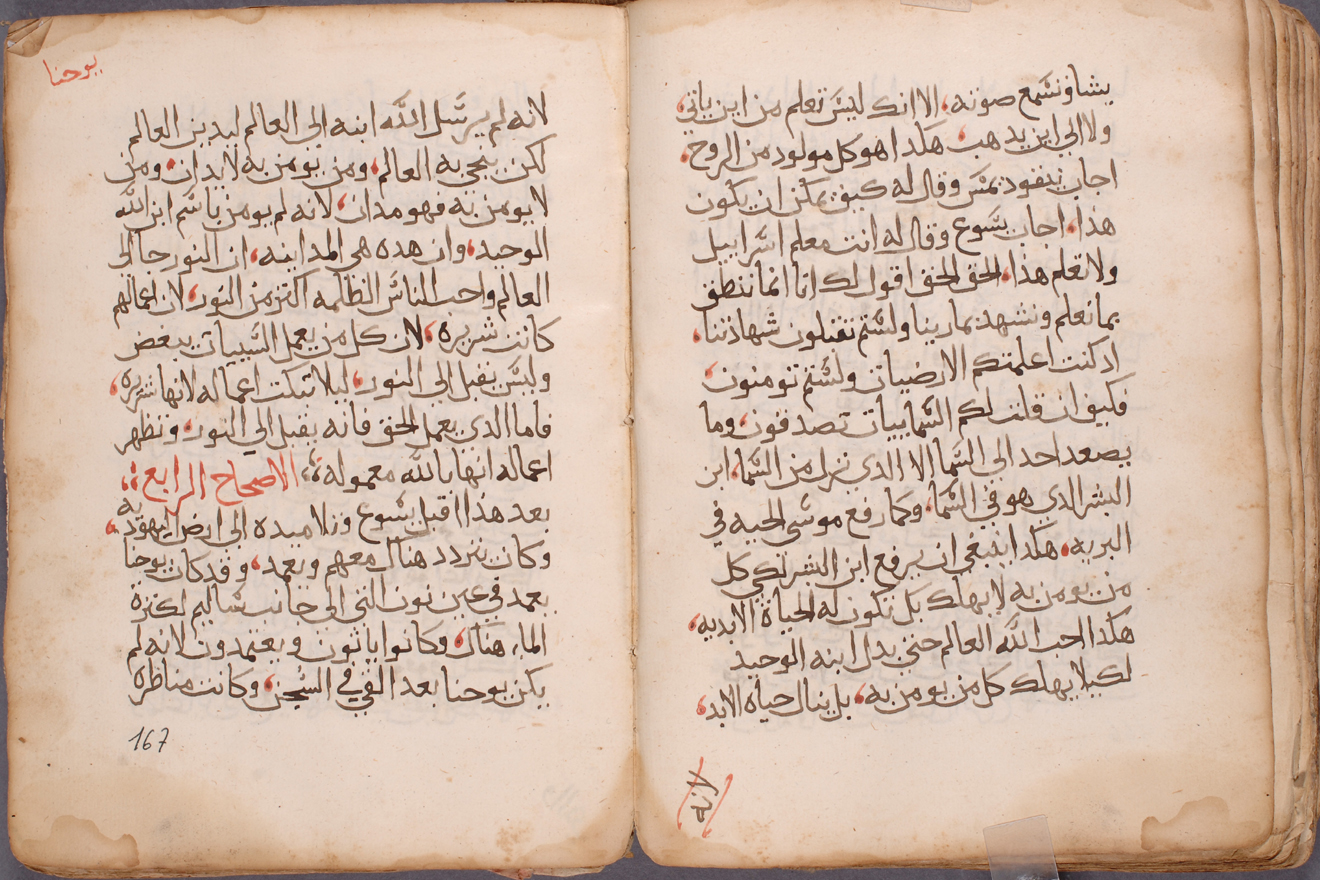 يشا وتسمع صوته، الا انك ليس تعلم من اين ياتي،
ولا الي اين يدهب، هكدا هو كل مولود من الروح،
اجاب نيقوديمس وقال له كيف يمكن ان يكون
هذا، اجاب يسوع وقال له انت معلم اسراييل
ولا تعلم هذا، الحق الحق اقول لك انا انما ننطق
بما نعلم ونشهد بما رينا ولستم تقبلون شهادتنا،
ادكنت اعلمتكم الارضيات ولستم تومنون،
فكيف ان قلت لكم السماييات تصدقون، وما
يصعد احد الي السما الا الدي نزل من السما، ابن
البشر الدي هو في السما، وكما رفع موسى الحيه في
البريه، هكدا ينبغي ان يرفع ابن البشر لكي كل
من يومن به لا يهلك بل تكون له الحياة الابديه،
هكدا احب الله العالم حتي بدل ابنه الوحيد
لكيلا يهلك كل من يومن به، بل ينال حياه الابد،
لانه
يوحنا
لانه لم يرسل الله ابنه الي العالم ليدين العالم
لكن ينجي به العالم، ومن يومن به لا يدان، ومن
لا يومن به فهو مدان، لانه لم يومن باسم ابن الله
الوحيد، وان هده هي المداينه، ان النور جا الى
العالم واحب الناس الظلمه اكتر من النور، لان اعمالهم
كانت شريره، لان كل من يعمل السييات يبغض
وليس يقبل الى النور، ليلا تبكت اعماله لانها شريره،
فاما الدي يعمل الحق فانه يقبل الي النور، وتظهر
اعماله انها بالله معموله، الاصحاح الرابع
بعد هذا اقبل يسوع وتلاميده الى ارض اليهوديه،
وكان يتردد هناك معهم ويعمد، وقد كان يوحنا
يعمد في عين نون التي الى جانب ساليم لكثرة
الماء هناك، وكانوا ياتون ويعتمدون لانه لم
يكن يوحنا بعد القي في السجن، وكانت مناظرة
167